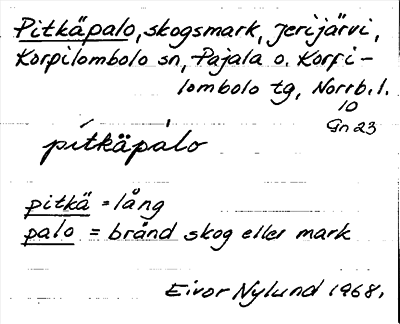 Pitkäpalo, skogsmark, Jerijärvi,
Korpilombolo sn, Pajala o. Korpi-
lombolo tg, Norrb. l.
10
Gn 23
pítkäpàlo
pitkä = lång
palo = bränd skog eller mark
Eivor Nylund 1968.